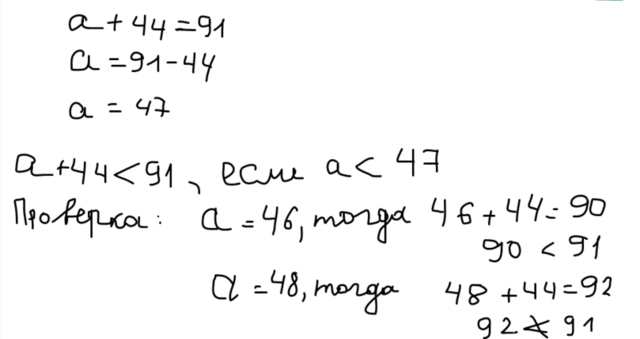 a + 44 = 91
a = 91 - 44
a = 47
a + 44 < 91, если a < 47
Проверка: a = 46, тогда 46 + 44 = 90
90 < 91
a = 48, тогда 48 + 44 = 92
92 ≮ 91